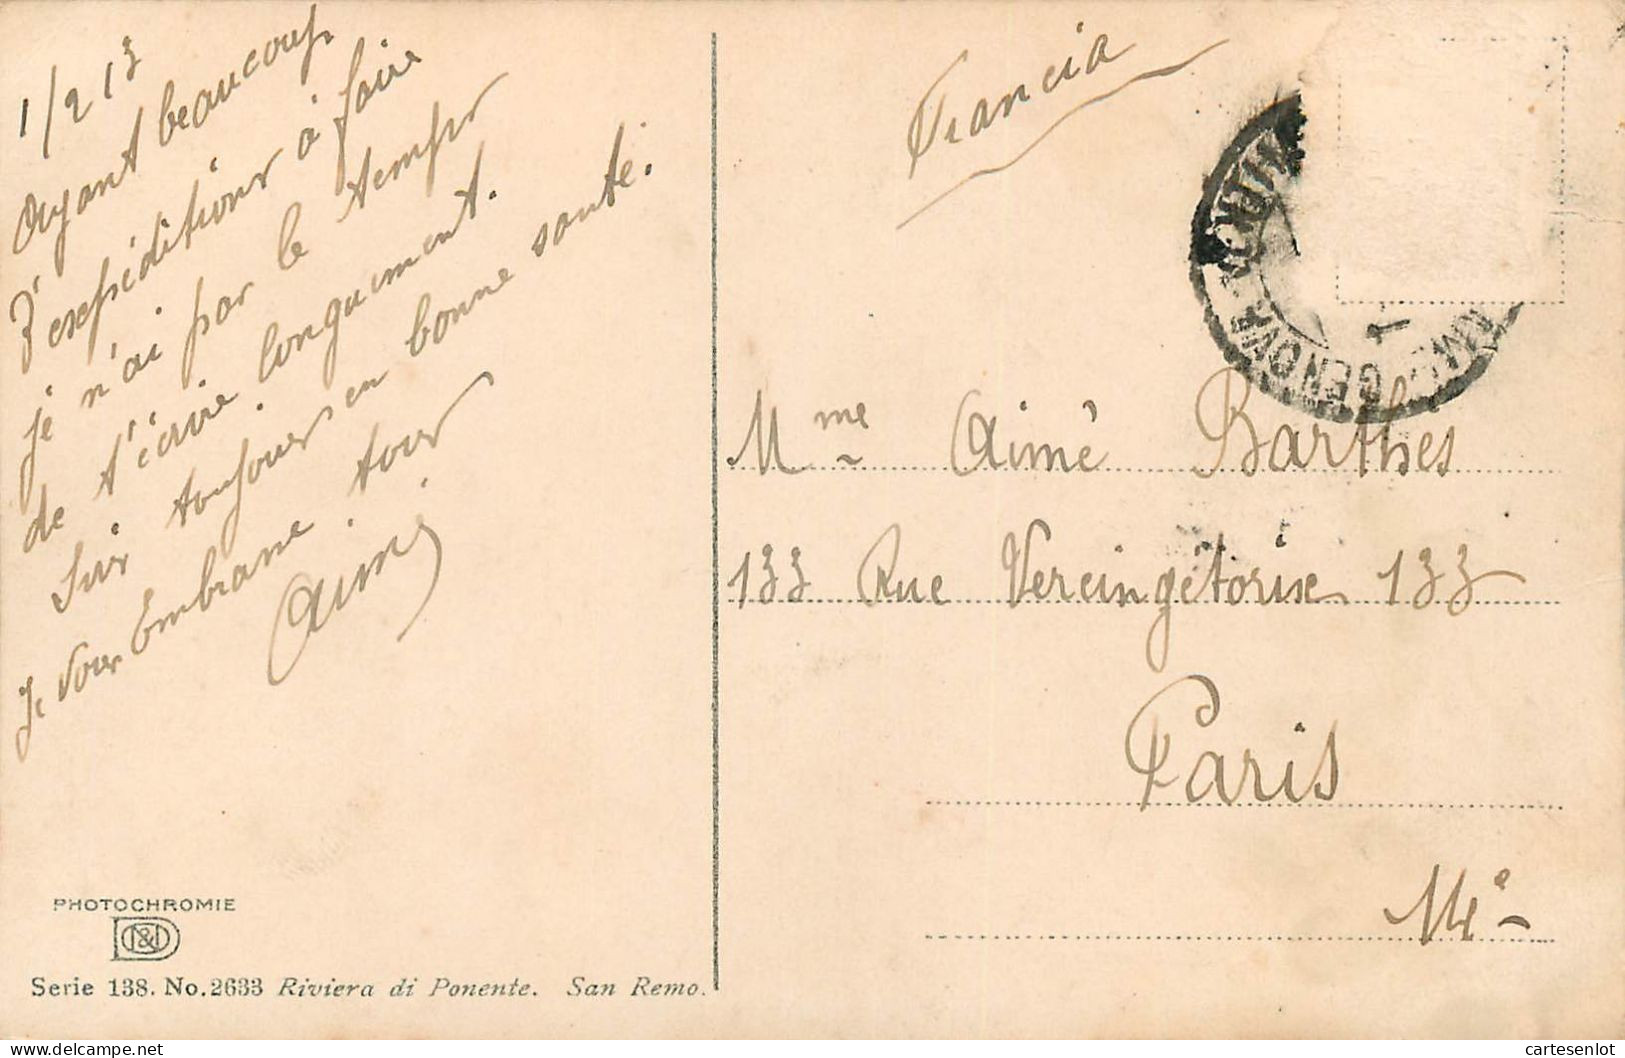 1/2 13
Ayant beaucoup
d'expéditions à faire
je n'ai pas le temps
de t'écrire longuement.
Suis toujours en bonne santé.
Je vous embrasse tous
Aimé
PHOTOCHROMIE
D N & D
Serie 138. No. 2633 Riviera di Ponente. San Remo.
Francia
GENOVA
Mme Aimé Barthes
133 Rue Vercingétorix 133
Paris
14e
cartesenlot